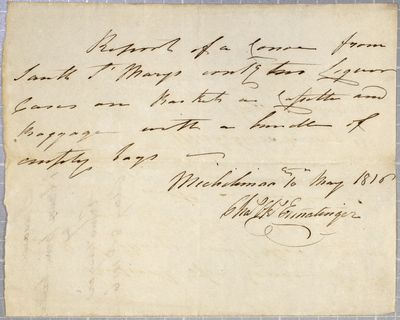 Report of a Canoe from
Sault St Marys contg two Liquor
Cases on Basket a Casette and
Baggage with a bundle of
empty bags —
Michilimac 10 May 1816
Chas Ermatinger